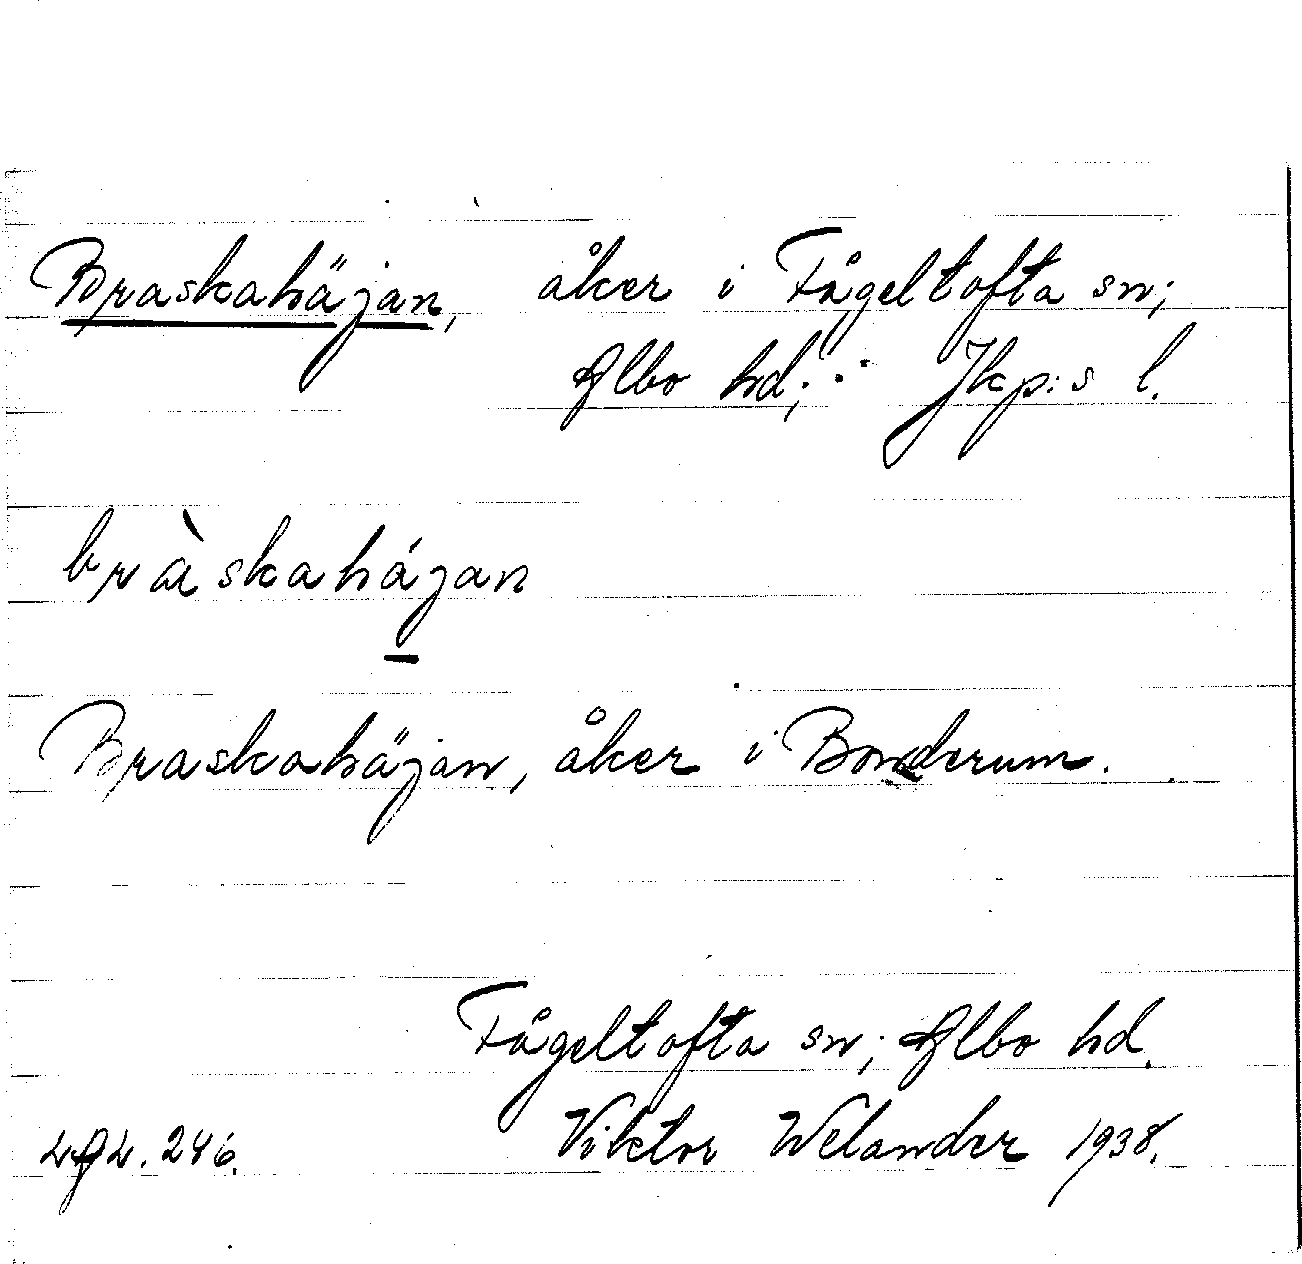 Braskahäjan, åker i Fågeltofta sn;
Albo hd; Jkp:s l.
bràskahájan
Braskahäjan, åker i Bonderum.
Fågeltofta sn; Albo hd.
Viktor Welander 1938.
246.